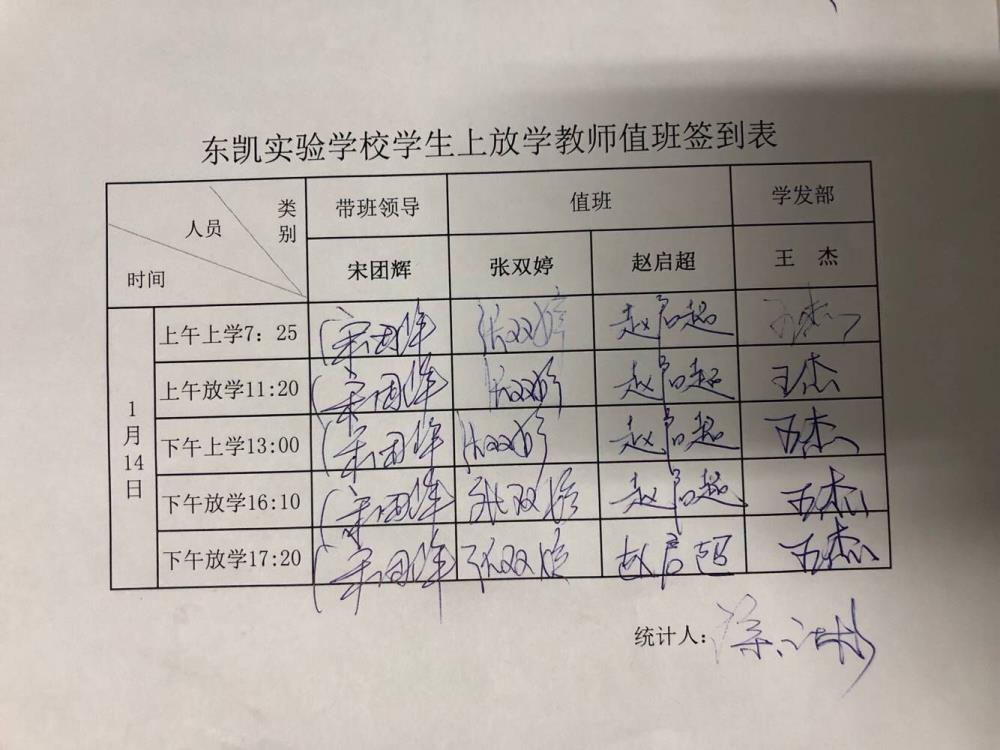 东凯实验学校学生上放学教师值班签到表
人员 类别 时间 带班领导 值班 学发部
宋团辉 张双婷 赵启超 王 杰
1月14日
上午上学7：25 宋团辉 张双婷 赵启超 王杰
上午放学11:20 宋团辉 张双婷 赵启超 王杰
下午上学13:00 宋团辉 张双婷 赵启超 王杰
下午放学16:10 宋团辉 张双婷 赵启超 王杰
下午放学17:20 宋团辉 张双婷 赵启超 王杰
统计人：